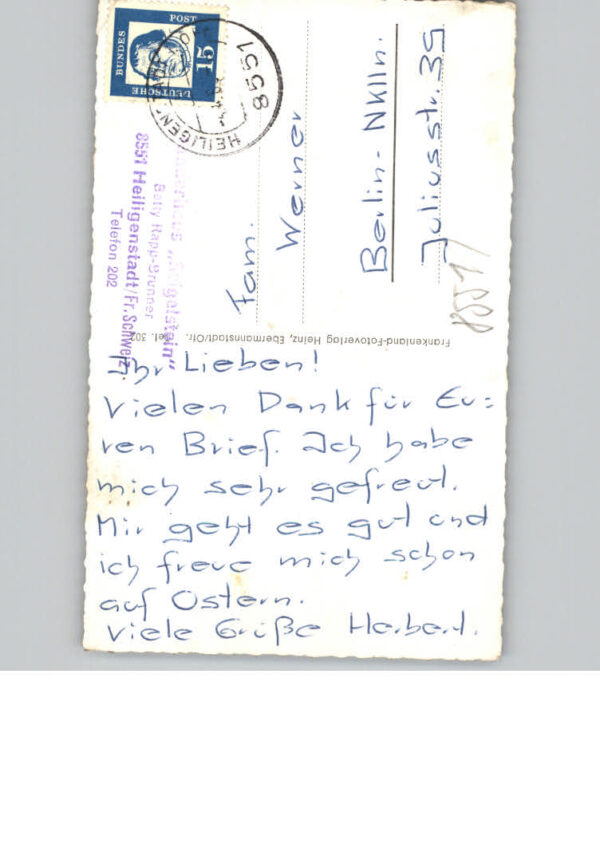 DEUTSCHE
BUNDES
POST
15
HEILIGENSTADT
8551
"Heigelstein"
Betty Rapp-Brunner
8551 Heiligenstadt/Fr. Schweiz
Telefon 202
Fam.
Werner
Berlin - Nklln.
Juliusstr. 35
8551/
Frankenland-Fotoverlag Heinz, Ebermannstadt/Ofr. Tel. 302
Ihr Lieben!
Vielen Dank für Eu=
ren Brief. Ich habe
mich sehr gefreut.
Mir geht es gut und
ich freue mich schon
auf Ostern.
Viele Grüße Herbert.